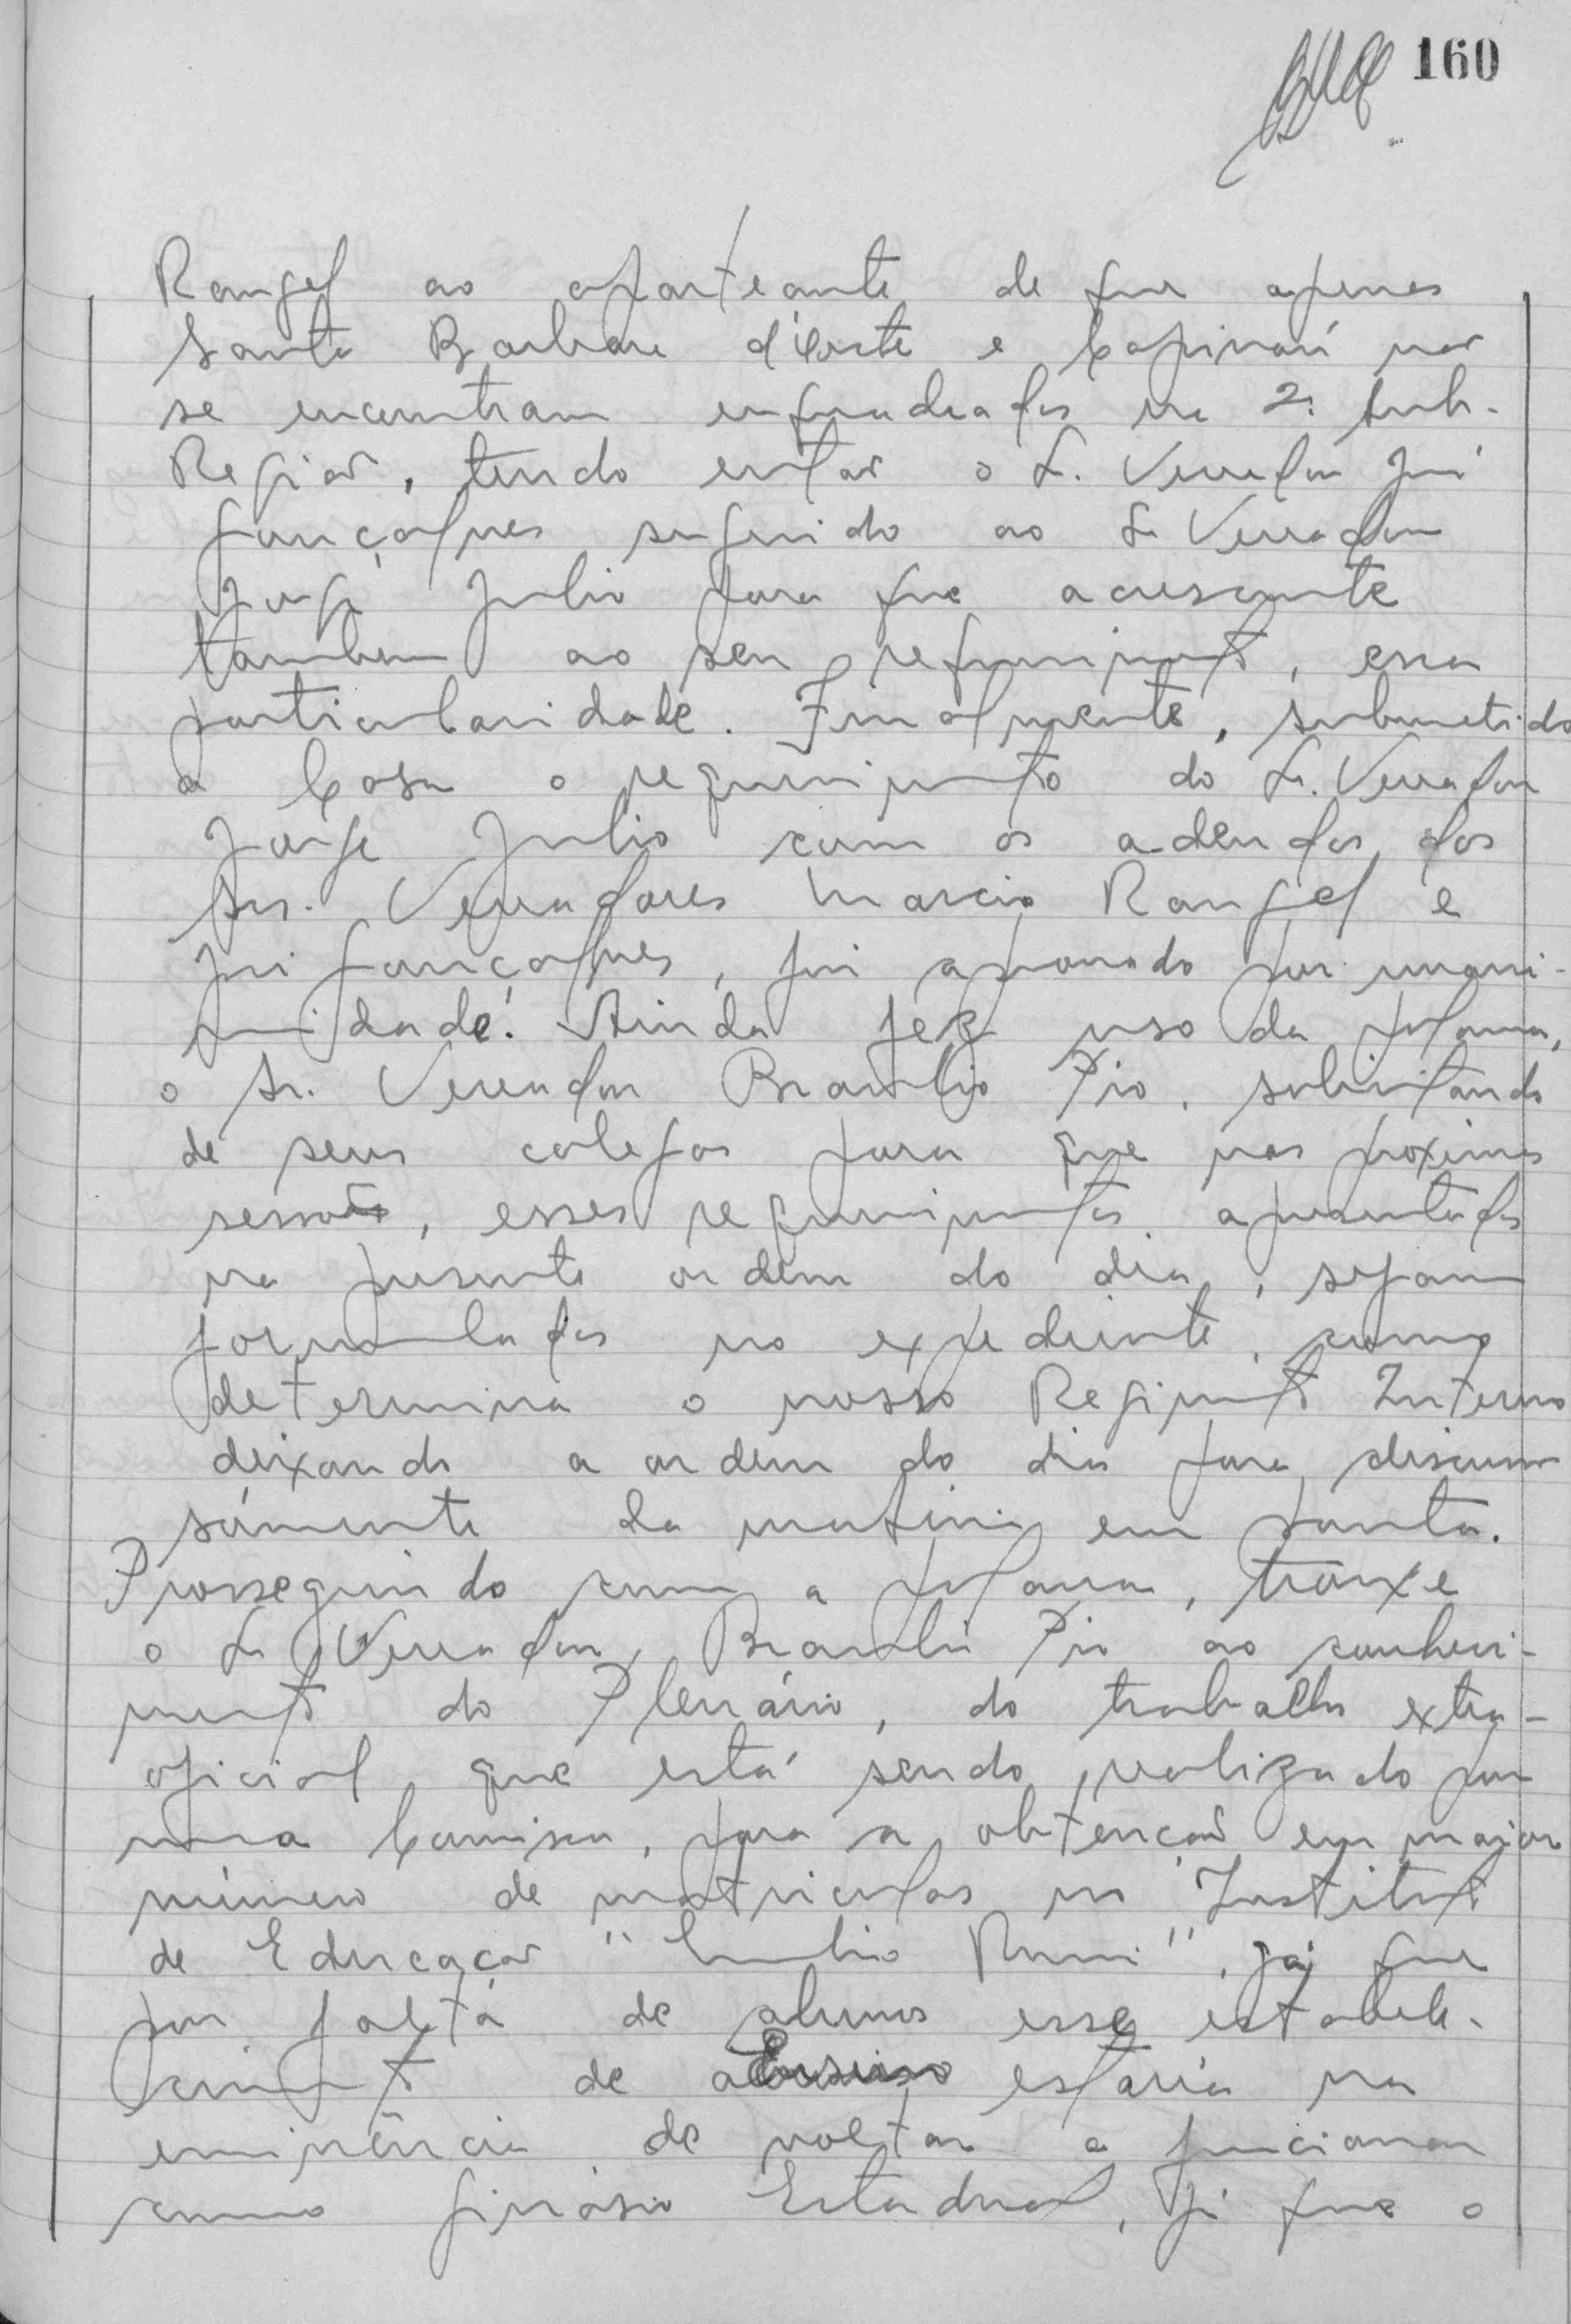 160
Rangel ao aparteante de que apenas
Santa Barbara d'Oeste e Capivari não
se encontram enquadrados na 2ª Sub-
Região, tendo então o Sr. Vereador
Gonçalves sugerido ao Sr Vereador
Jorge Julio para que acrescente
tambem ao seu requerimento, essa
particularidade. Finalmente, submetido
a Casa o requerimento do Sr. Vereador
Jorge Julio com os adendos dos
Srs. Vereadores Marcio Rangel e
Gonçalves, foi aprovado por unani-
midade. Ainda fez uso da palavra,
o Sr. Vereador Brasilio Pio, solicitando
de seus colegas para que nas proximas
sessões, esses requerimentos apresentados
na presente ordem do dia, sejam
formulados no expediente, como
determina o nosso Regimento Interno
deixando a ordem do dia para discussão
sómente da matéria em pauta.
Prosseguindo com a palavra, trouxe
o Sr Vereador Brasilio Pio ao conheci-
mento do Plenário, do trabalho extra-
oficial que está sendo realizado por
uma Comissão, para a obtenção em maior
número de matriculas no Instituto
de Educação " ", já que
por falta de alunos esse estabele-
cimento de Ensino estaria na
eminência de voltar a funcionar
como ginásio Estadual, já que o